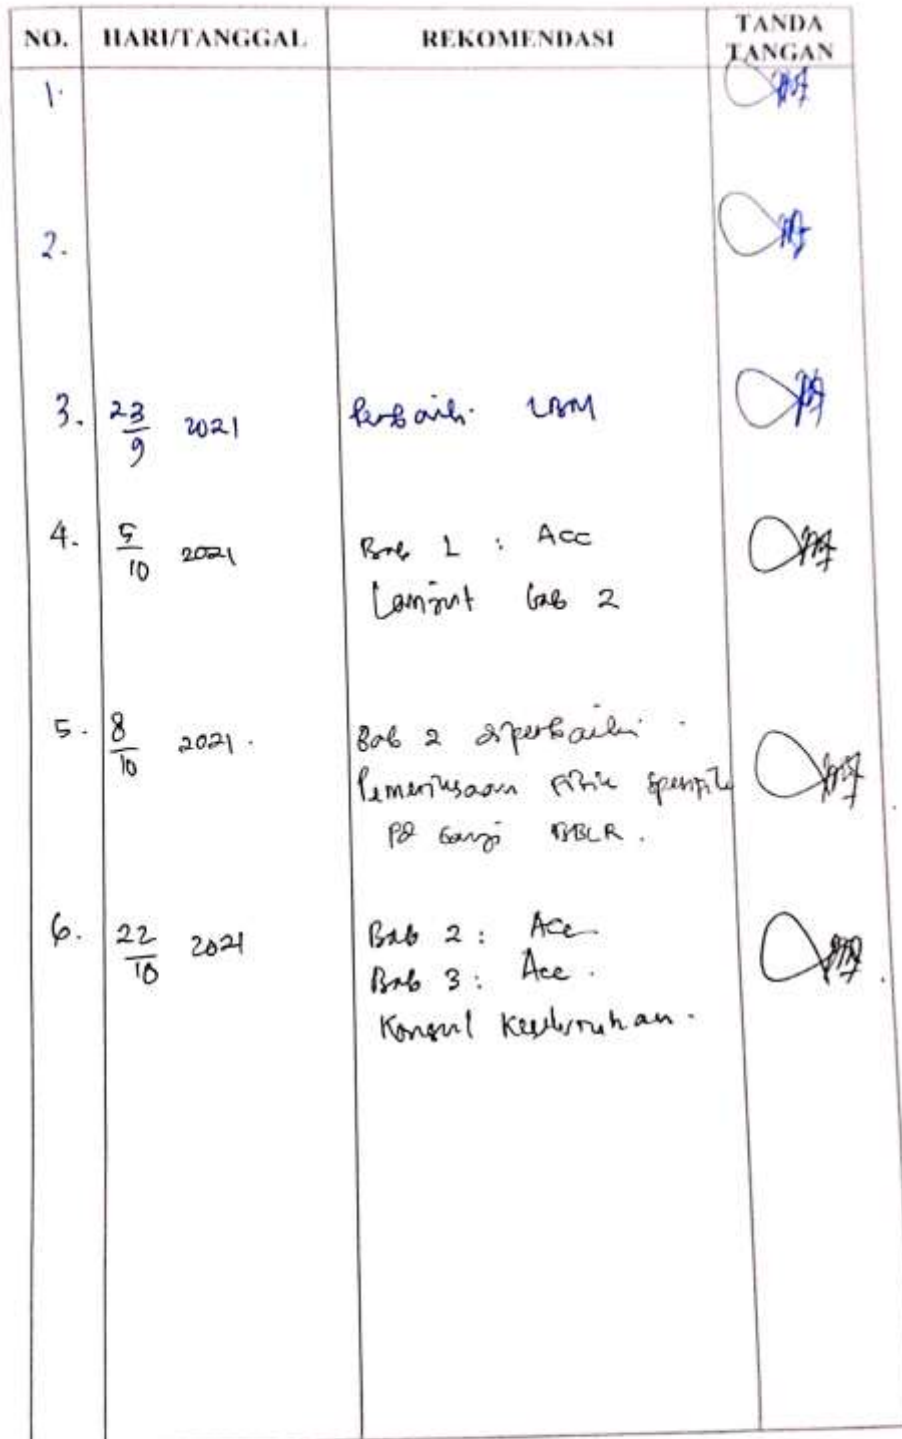 NO. HARI/TANGGAL REKOMENDASI TANDA TANGAN
1.
2.
3. 23/9 2021 Perbaiki LBM
4. 5/10 2021 Bab 1 : Acc
Lanjut bab 2
5. 8/10 2021. Bab 2 diperbaiki.
Pemeriksaan Fisik spesifik
pd bayi BBLR.
6. 22/10 2021 Bab 2 : Acc
Bab 3 : Acc.
Konsul keseluruhan.